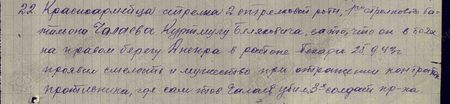 22. Красноармейца стрелка 2 стрелковой роты, 1го стрелкового ба-
тальона Галаева Курткулу Беляковича, за то, что он в боях
на правом берегу Днепра в районе Бекари 28.9.43г.
проявил смелость и мужество при отражении контратак
противника, где сам тов Галаев убил 3х солдат пр-ка